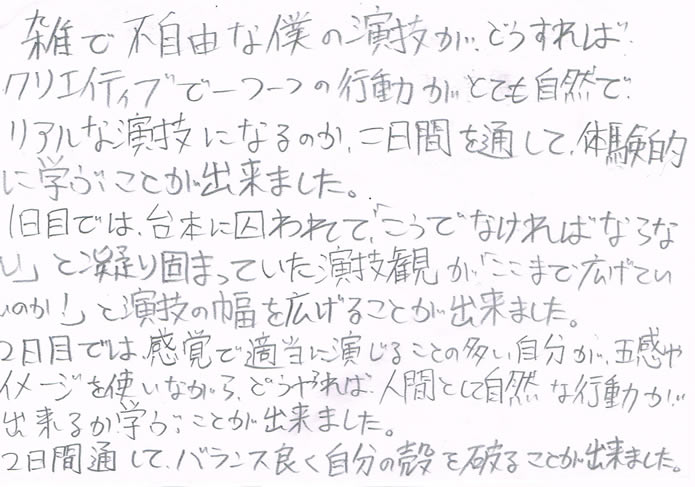 雑で不自由な僕の演技が、どうすれば
クリエイティブで一つ一つの行動がとても自然で
リアルな演技になるのか、二日間を通して、体験的
に学ぶことが出来ました。
1日目では、台本に囚われて、「こうでなければならな
い」と凝り固まっていた演技観が「ここまで広げてい
いのか!」と演技の幅を広げることが出来ました。
2日目では、感覚で適当に演じることの多い自分が、五感や
イメージを使いながら、どうやれば、人間として自然な行動が
出来るか学ぶことが出来ました。
2日間通して、バランス良く自分の殻を破ることが出来ました。